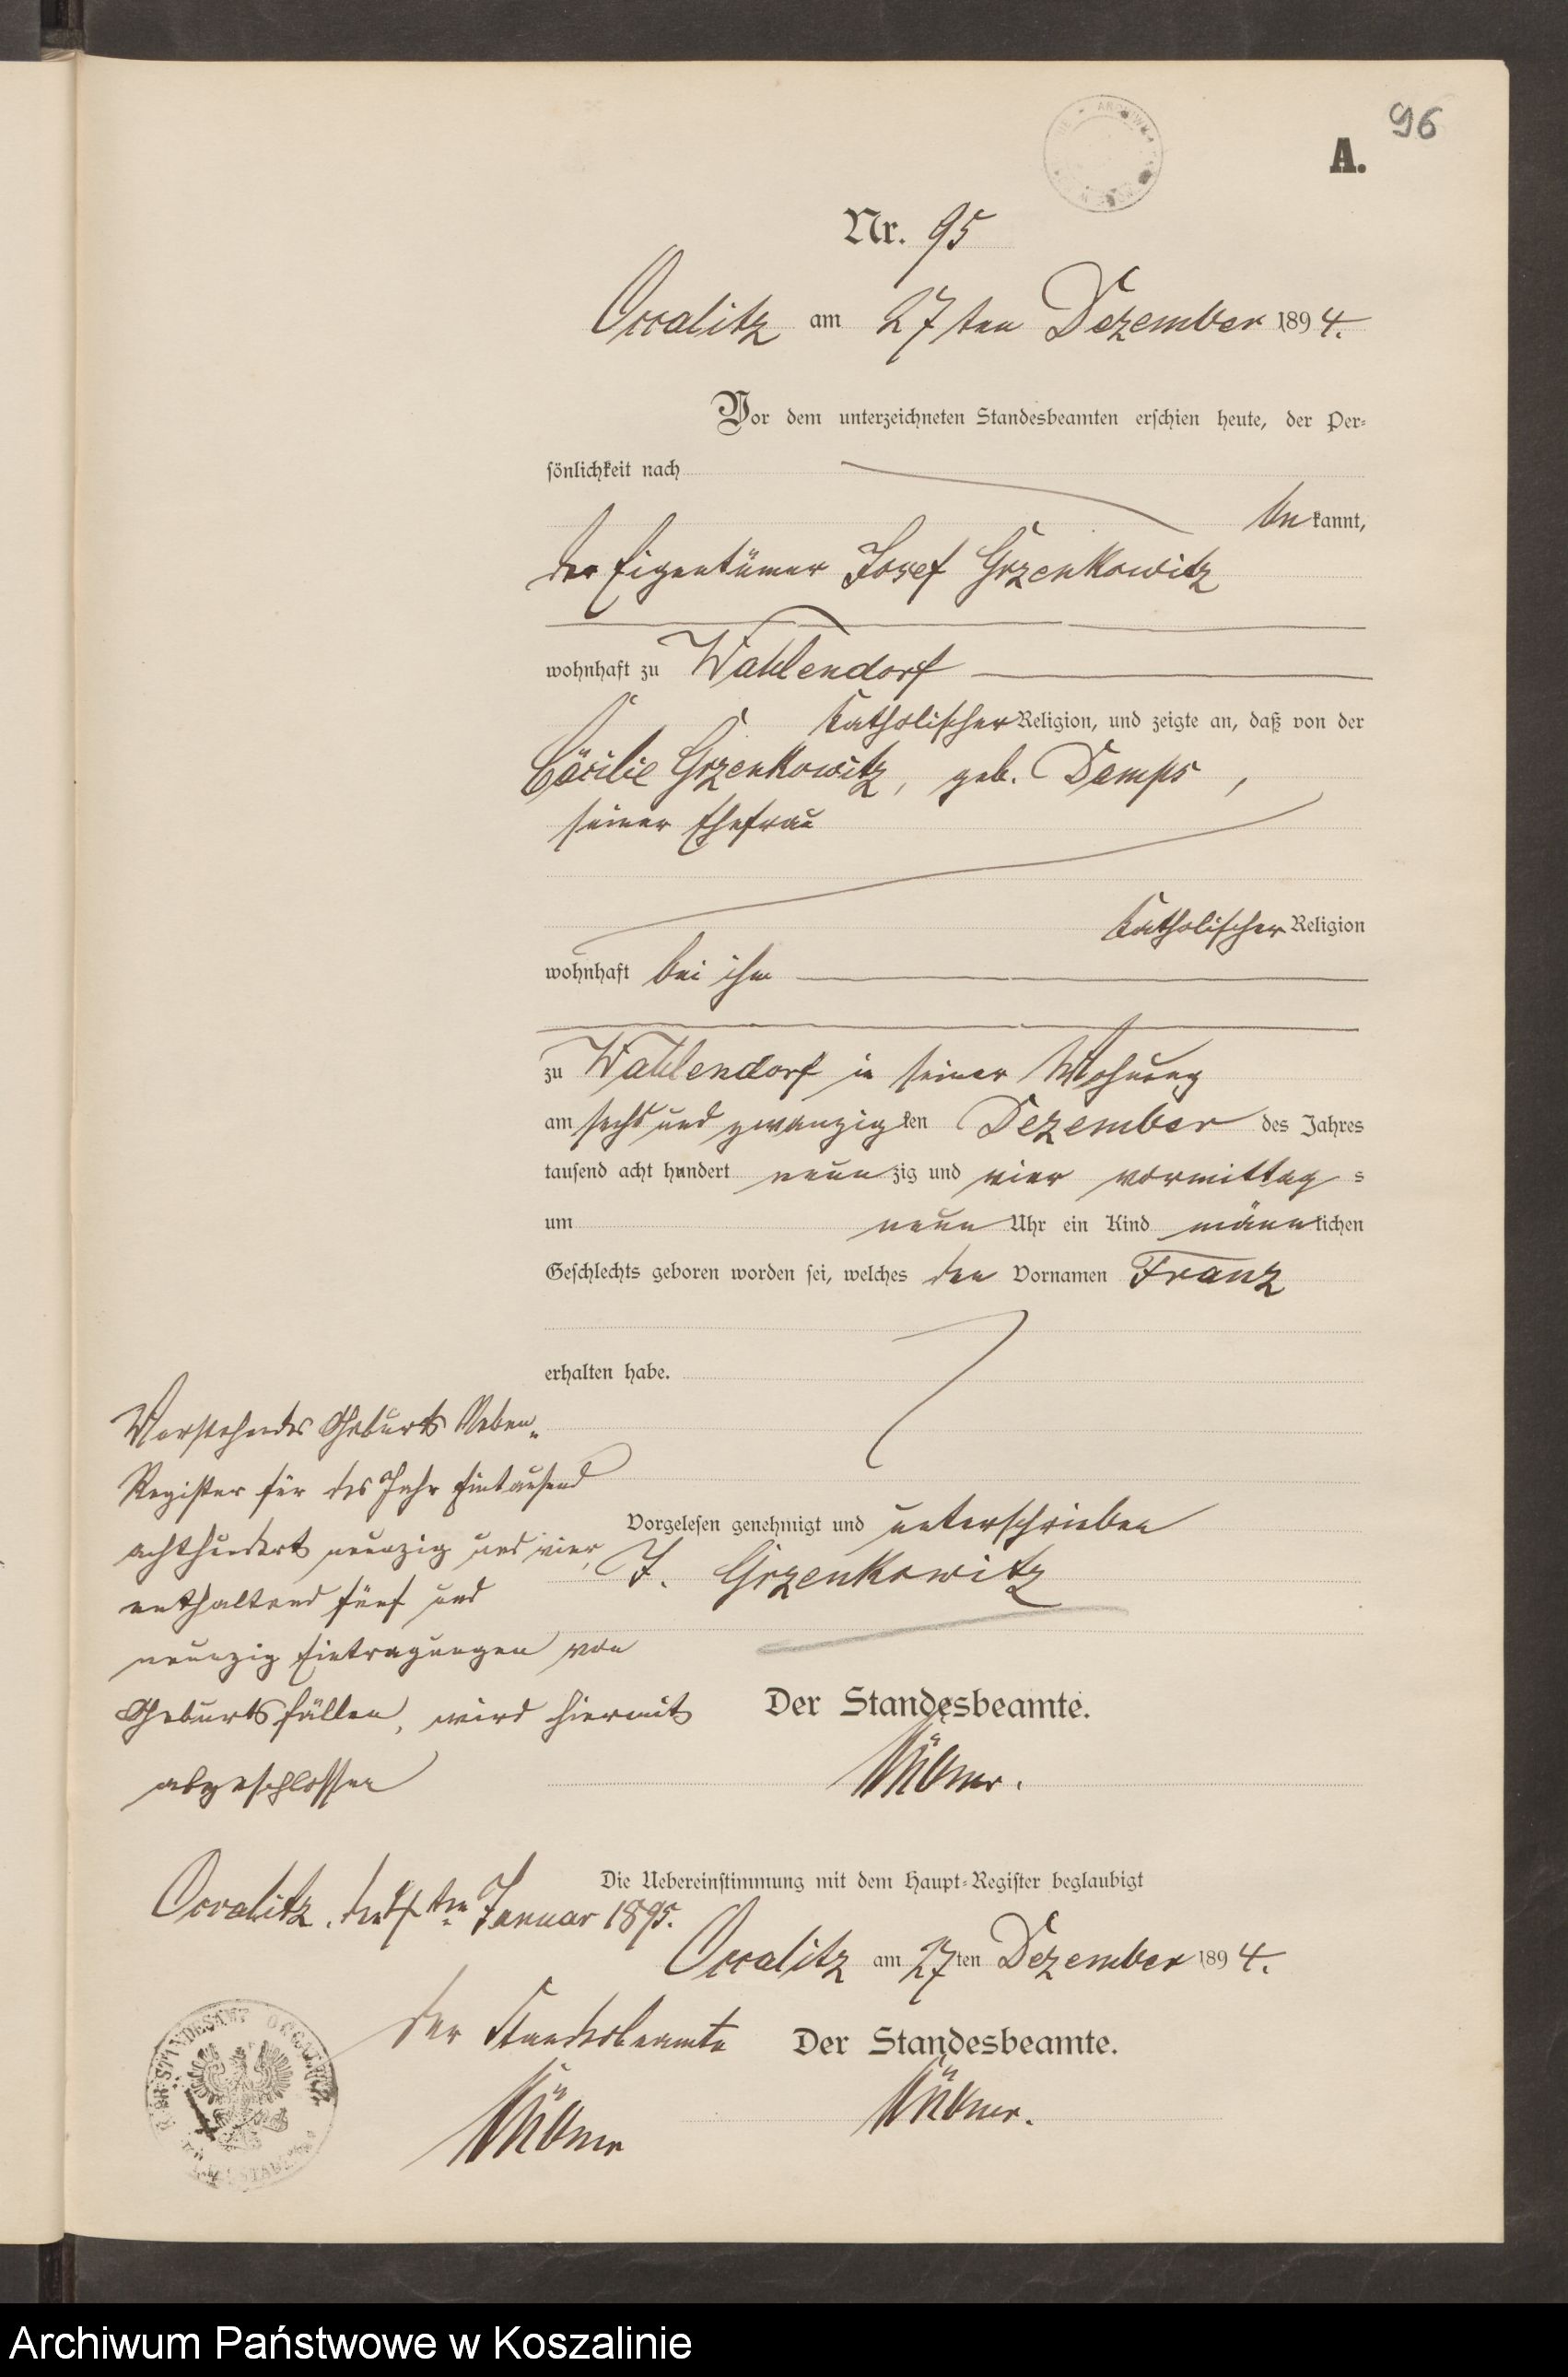 96
A.
Nr. 95
Occalitz am 27ten Dezember 1894.
Vor dem unterzeichneten Standesbeamten erschien heute, der Per-
sönlichkeit nach
bekannt,
der Eigentümer Josef Grzenkowitz
wohnhaft zu Wahlendorf
katholischer Religion, und zeigte an, daß von der
Cäcilie Grzenkowitz, geb. Damps,
seiner Ehefrau
katholischer Religion
wohnhaft bei ihm
zu Wahlendorf in seiner Wohnung
am sechs und zwanzigten Dezember des Jahres
tausend acht hundert neunzig und vier vormittags
um neun Uhr ein Kind männlichen
Geschlechts geboren worden sei, welches den Vornamen Franz
erhalten habe.
Vorgelesen genehmigt und unterschrieben
J. Grzenkowitz
Der Standesbeamte.
Vorstehendes Geburts Neben-
Register für das Jahr Eintausend
achthundert neunzig und vier,
enthaltend fünf und
neunzig Eintragungen von
Geburtsfällen, wird hiermit
abgeschlossen
Occalitz, den ten Januar 1895.
der Standesbeamte
Die Uebereinstimmung mit dem Haupt-Register beglaubigt
Occalitz am 27ten Dezember 1894.
Der Standesbeamte.
Archiwum Państwowe w Koszalinie